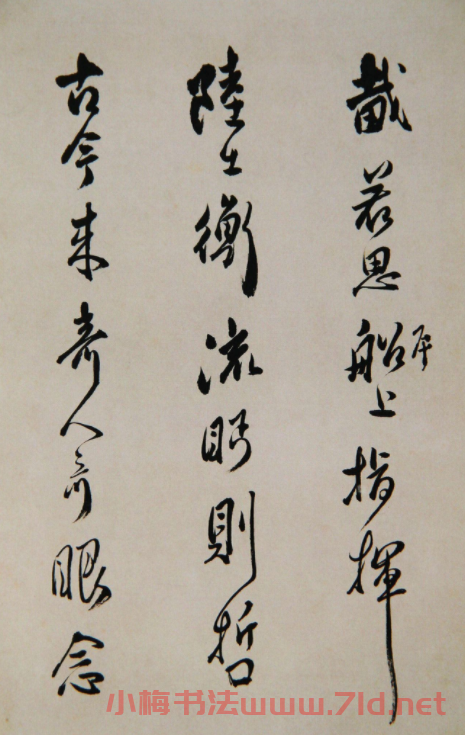 戴若思船屋上指揮
陸士衡流眄則哲
古今来奇人奇眼念
小梅书法www.7ld.net